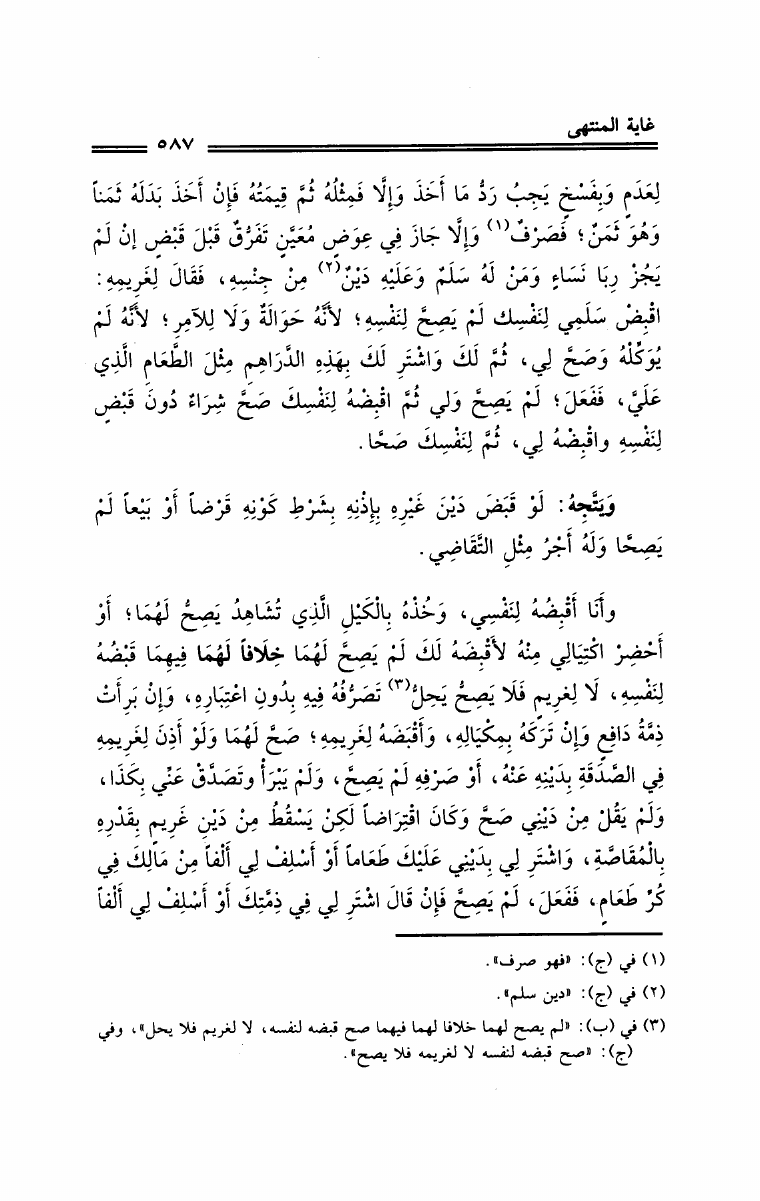 غاية المنتهى
٥٨٧
لِعَدَمٍ وَبِفَسْخٍ يَجِبُ رَدُّ مَا أَخَذَ وَإِلَّا فَمِثْلُهُ ثُمَّ قِيمَتُهُ فَإِنْ أَخَذَ بَدَلَهُ ثَمَناً
وَهُوَ ثَمَنٌ؛ فَصَرْفٌ(١) وَإِلَّا جَازَ فِي عِوَضٍ مُعَيَّنٍ تَفَرُّقٌ قَبْلَ قَبْضٍ إنْ لَمْ
يَجُزْ رِبَا نَسَاءٍ وَمَنْ لَهُ سَلَمٌ وَعَلَيْهِ دَيْنٌ(٢) مِنْ جِنْسِهِ، فَقَالَ لِغَرِيمِهِ:
اقْبِضْ سَلَمِي لِنَفْسِك لَمْ يَصِحَّ لِنَفْسِهِ؛ لأَنَّهُ حَوَالَةٌ وَلَا لِلآمِرِ؛ لأَنَّهُ لَمْ
يُوَكِّلْهُ وَصَحَّ لِي، ثُمَّ لَكَ وَاشْتَرِ لَكَ بِهَذِهِ الدَّرَاهِمِ مِثْلَ الطَّعَامِ الَّذِي
عَلَيَّ، فَفَعَلَ؛ لَمْ يَصِحَّ وَلي ثُمَّ اقْبِضْهُ لِنَفْسِكَ صَحَّ شِرَاءٌ دُونَ قَبْضٍ
لِنَفْسِهِ واقْبِضْهُ لِي، ثُمَّ لِنَفْسِكَ صَحَّا.
وَيَتَّجِهُ: لَوْ قَبَضَ دَيْنَ غَيْرِهِ بِإِذْنِهِ بِشَرْطِ كَوْنِهِ قَرْضاً أَوْ بَيْعاً لَمْ
يَصِحَّا وَلَهُ أَجْرُ مِثْلِ التَّقَاضِي.
وأَنَا أَقْبِضُهُ لِنَفْسِي، وَخُذْهُ بِالْكَيْلِ الَّذِي تُشَاهِدُ يَصِحُّ لَهُمَا؛ أَوْ
أَحْضِرْ اكْتِيَالِي مِنْهُ لأَقْبِضَهُ لَكَ لَمْ يَصِحَّ لَهُمَا خِلَافاً لَهُمَا فِيهِمَا قَبْضُهُ
لِنَفْسِهِ، لَا لِغَرِيمٍ فَلَا يَصِحُّ يَحِلُّ(٣) تَصَرُّفُهُ فِيهِ بِدُونِ اعْتِبَارِهِ، وَإِنْ بَرَأَتْ
ذِمَّةُ دَافِعٍ وَإِنْ تَرَكَهُ بِمِكْيَالِهِ، وَأَقْبَضَهُ لِغَرِيمِهِ؛ صَحَّ لَهُمَا وَلَوْ أَذِنَ لِغَرِيمِهِ
فِي الصَّدَقَةِ بِدَيْنِهِ عَنْهُ، أَوْ صَرْفِهِ لَمْ يَصِحَّ، وَلَمْ يَبْرَأْ وتَصَدَّقْ عَنِّي بِكَذَا،
وَلَمْ يَقُلْ مِنْ دَيْنِي صَحَّ وَكَانَ اقْتِرَاضاً لَكِنْ يَسْقُطُ مِنْ دَيْنِ غَرِيمٍ بِقَدْرِهِ
بِالْمُقَاصَّةِ، وَاشْتَرِ لِي بِدَيْنِي عَلَيْكَ طَعَاماً أَوْ أَسْلِفْ لِي أَلْفاً مِنْ مَالِكَ فِي
كُرِّ طَعَامٍ، فَفَعَلَ، لَمْ يَصِحَّ فَإِنْ قَالَ اشْتَرِ لِي فِي ذِمَّتِكَ أَوْ أَسْلِفْ لِي أَلْفاً
(١) في (ج): «فهو صرف».
(٢) في (ج): «دين سلم».
(٣) في (ب): «لم يصح لهما خلافا لهما فيهما صح قبضه لنفسه، لا لغريم فلا يحل»، وفي
(ج): «صح قبضه لنفسه لا لغريمه فلا يصح».